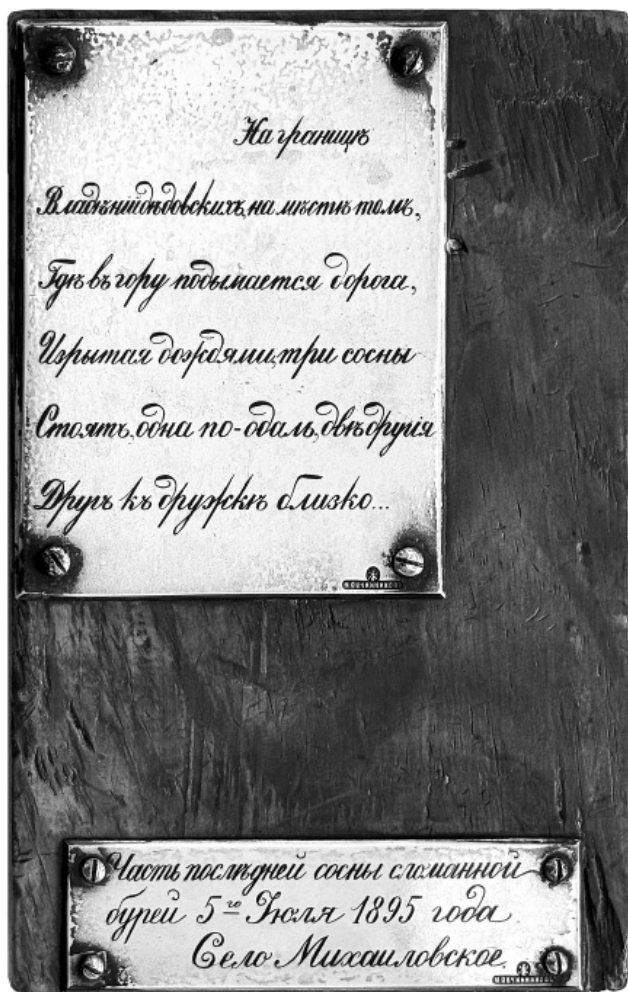 На границѣ
Владѣній дѣдовскихъ, на мѣстѣ томъ,
Гдѣ въ гору подымается дорога,
Изрытая дождями, три сосны
Стоятъ, одна по-одаль, двѣ другія
Другъ къ дружкѣ близко...
Часть послѣдней сосны сломанной
бурей 5го Iюля 1895 года
Село Михаиловское.